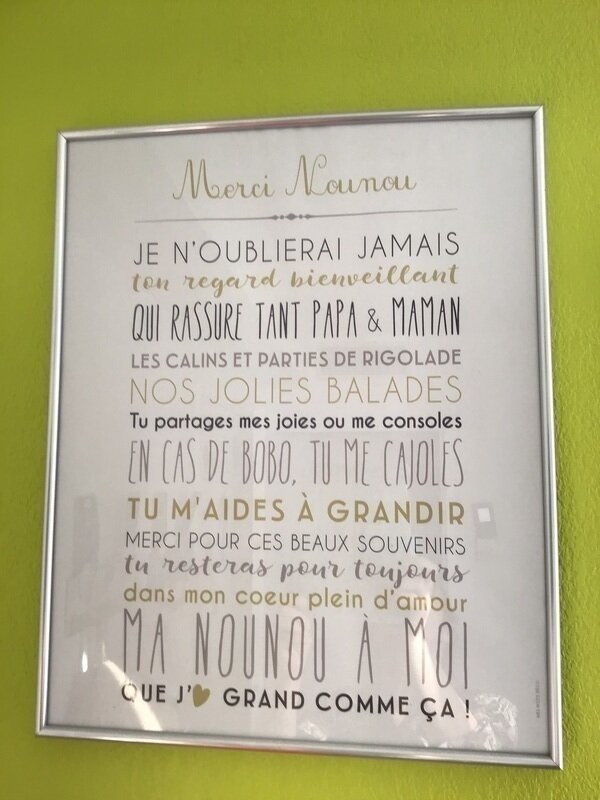 Merci Nounou
JE N'OUBLIERAI JAMAIS
ton regard bienveillant
QUI RASSURE TANT PAPA & MAMAN
LES CALINS ET PARTIES DE RIGOLADE
NOS JOLIES BALADES
Tu partages mes joies ou me consoles
EN CAS DE BOBO, TU ME CAJOLES
TU M'AIDES À GRANDIR
MERCI POUR CES BEAUX SOUVENIRS
tu resteras pour toujours
dans mon coeur plein d'amour
MA NOUNOU À MOI
QUE J'♥ GRAND COMME ÇA !